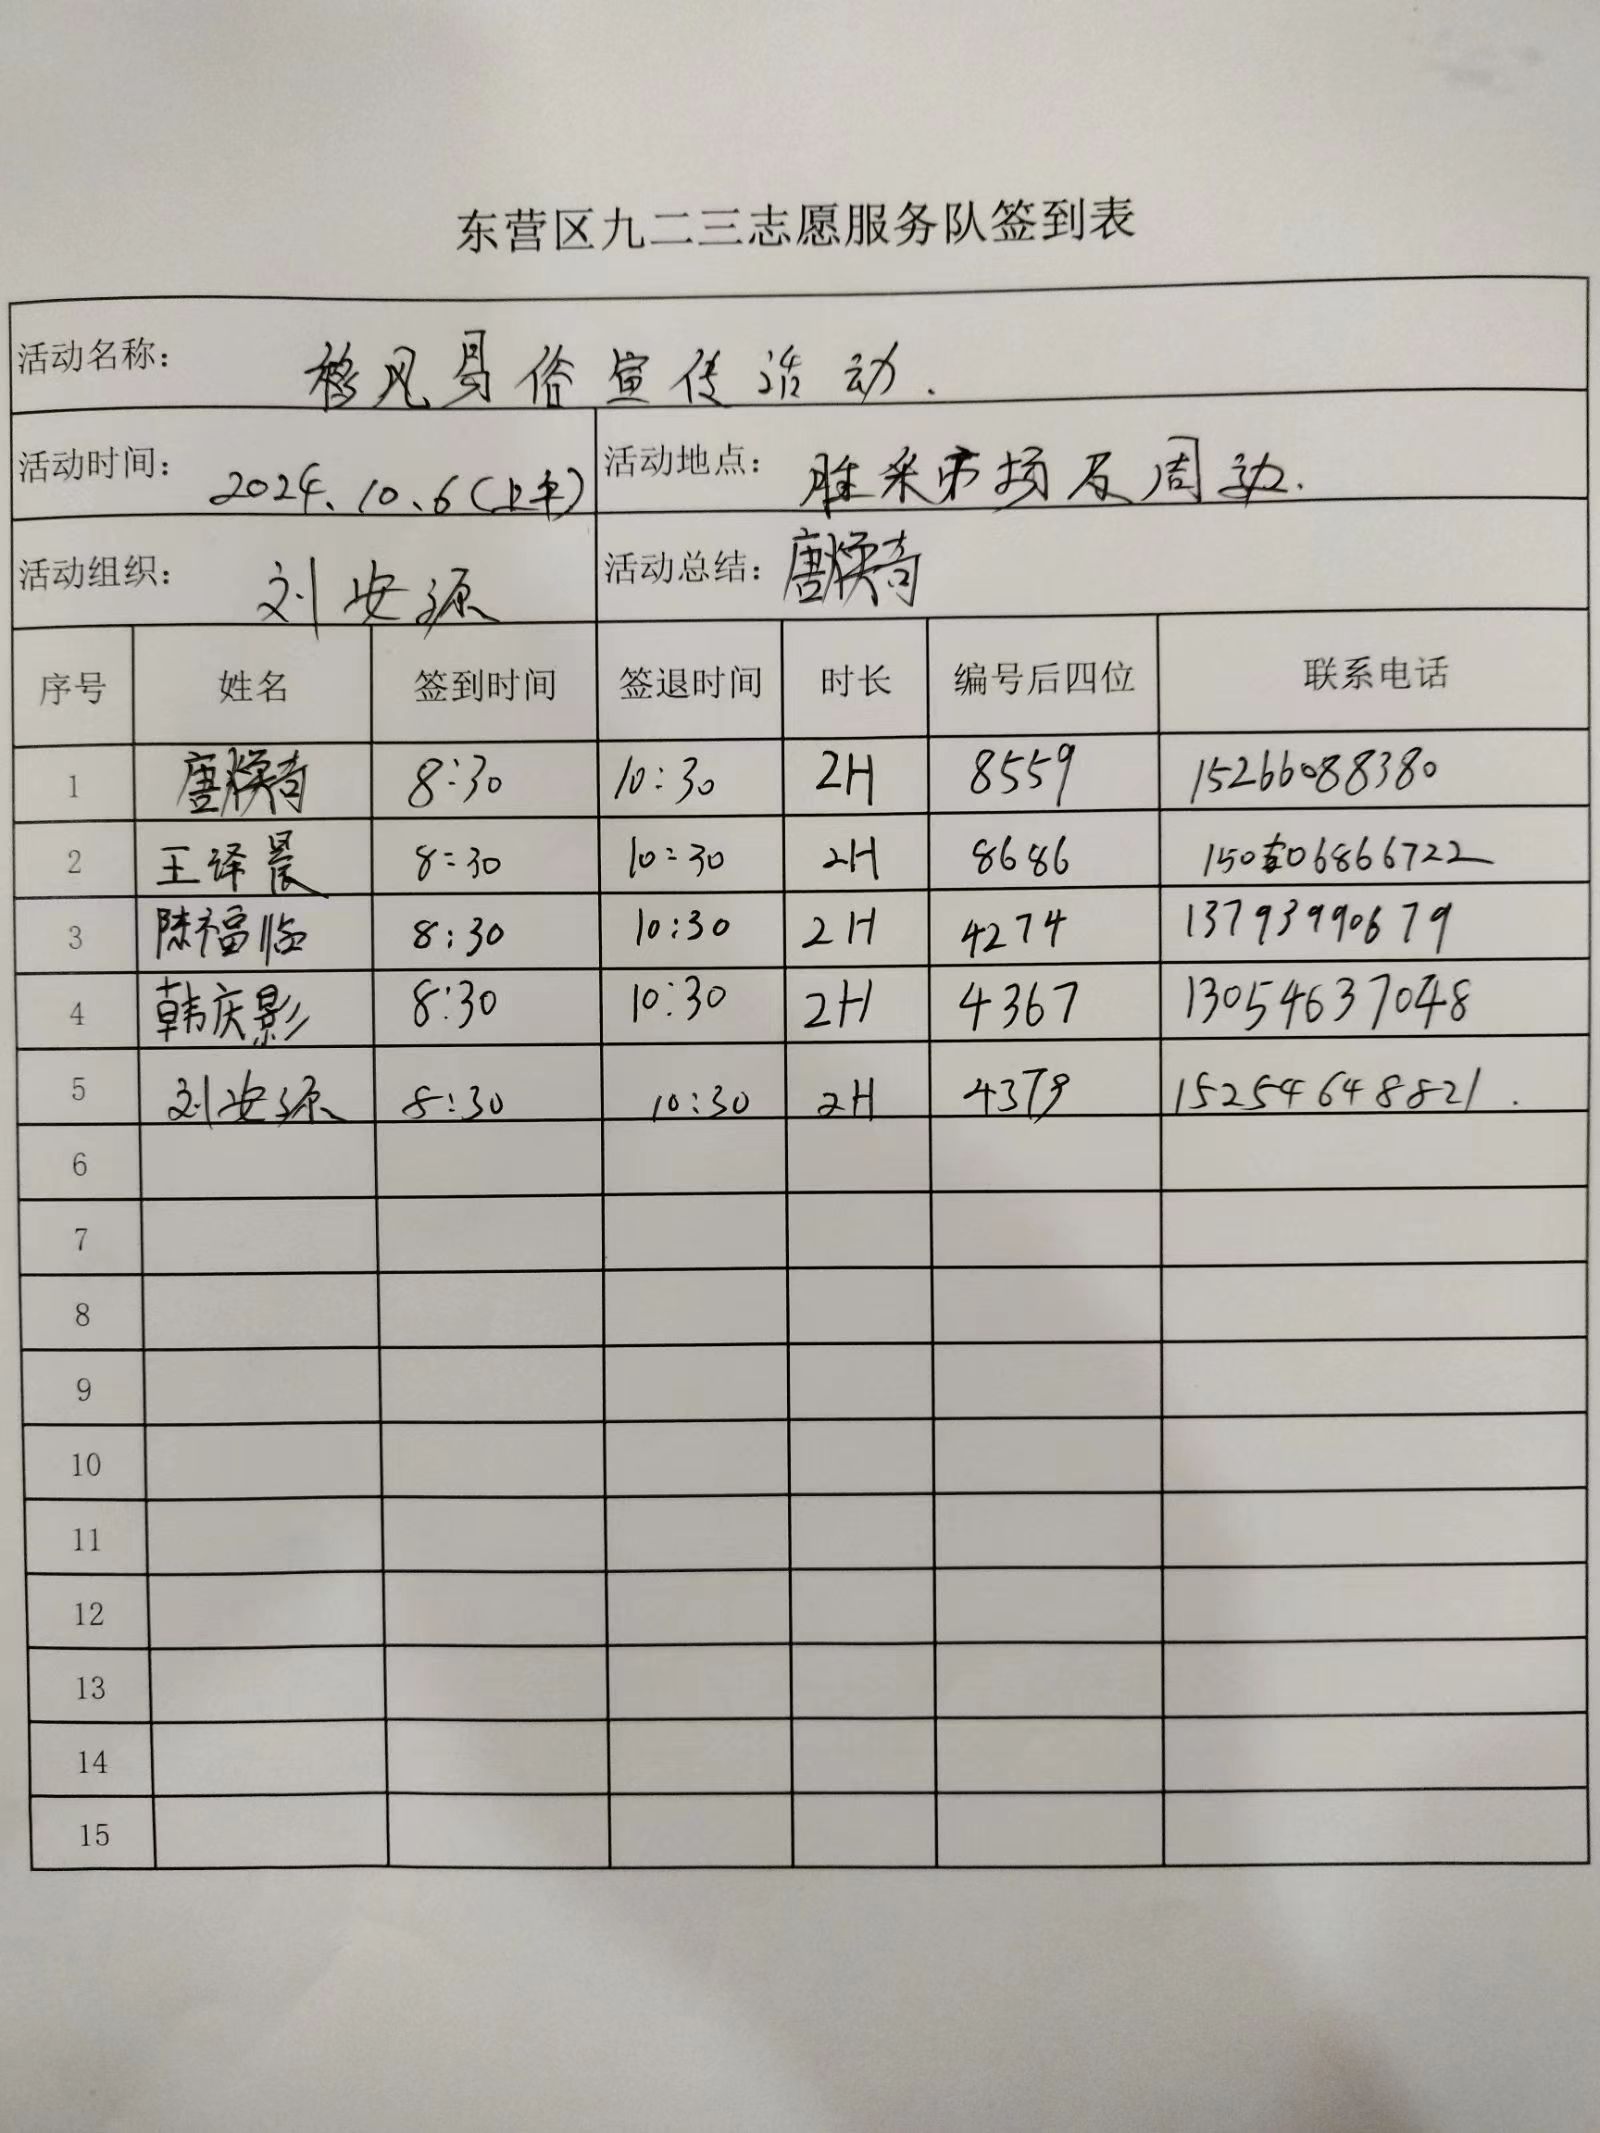 东营区九二三志愿服务队签到表
活动名称: 移风易俗宣传活动.
活动时间: 2024.10.6(上午) 活动地点: 胜采市场及周边.
活动组织: 刘安源 活动总结: 唐焕奇
序号 姓名 签到时间 签退时间 时长 编号后四位 联系电话
1 唐焕奇 8:30 10:30 2H 8559 15266088380
2 王译晨 8:30 10:30 2H 8686
3 陈福临 8:30 10:30 2H 4274 13793990679
4 韩庆影 8:30 10:30 2H 4367 13054637048
5 刘安源 8:30 10:30 2H 4379 15254648821.
6
7
8
9
10
11
12
13
14
15